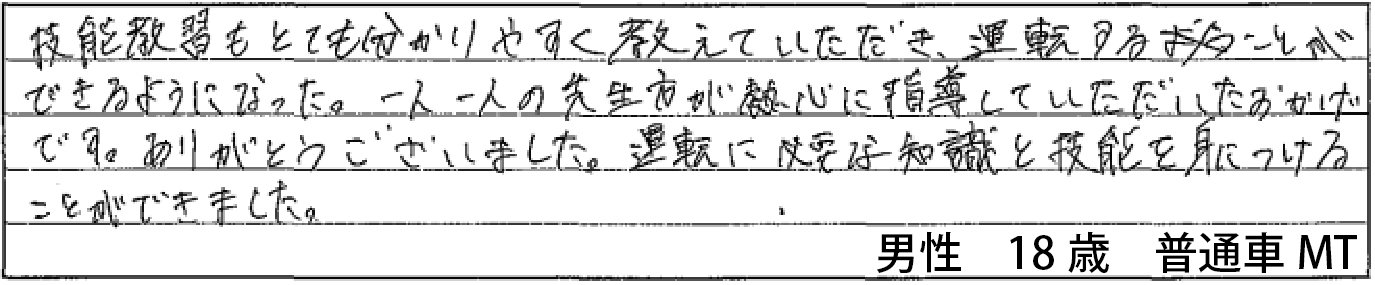 技能教習もとても分かりやすく教えていただき、運転することが
できるようになった。一人一人の先生方が熱心に指導していただいたおかげ
です。ありがとうございました。運転に必要な知識と技能を身につける
ことができました。
男性 18歳 普通車MT